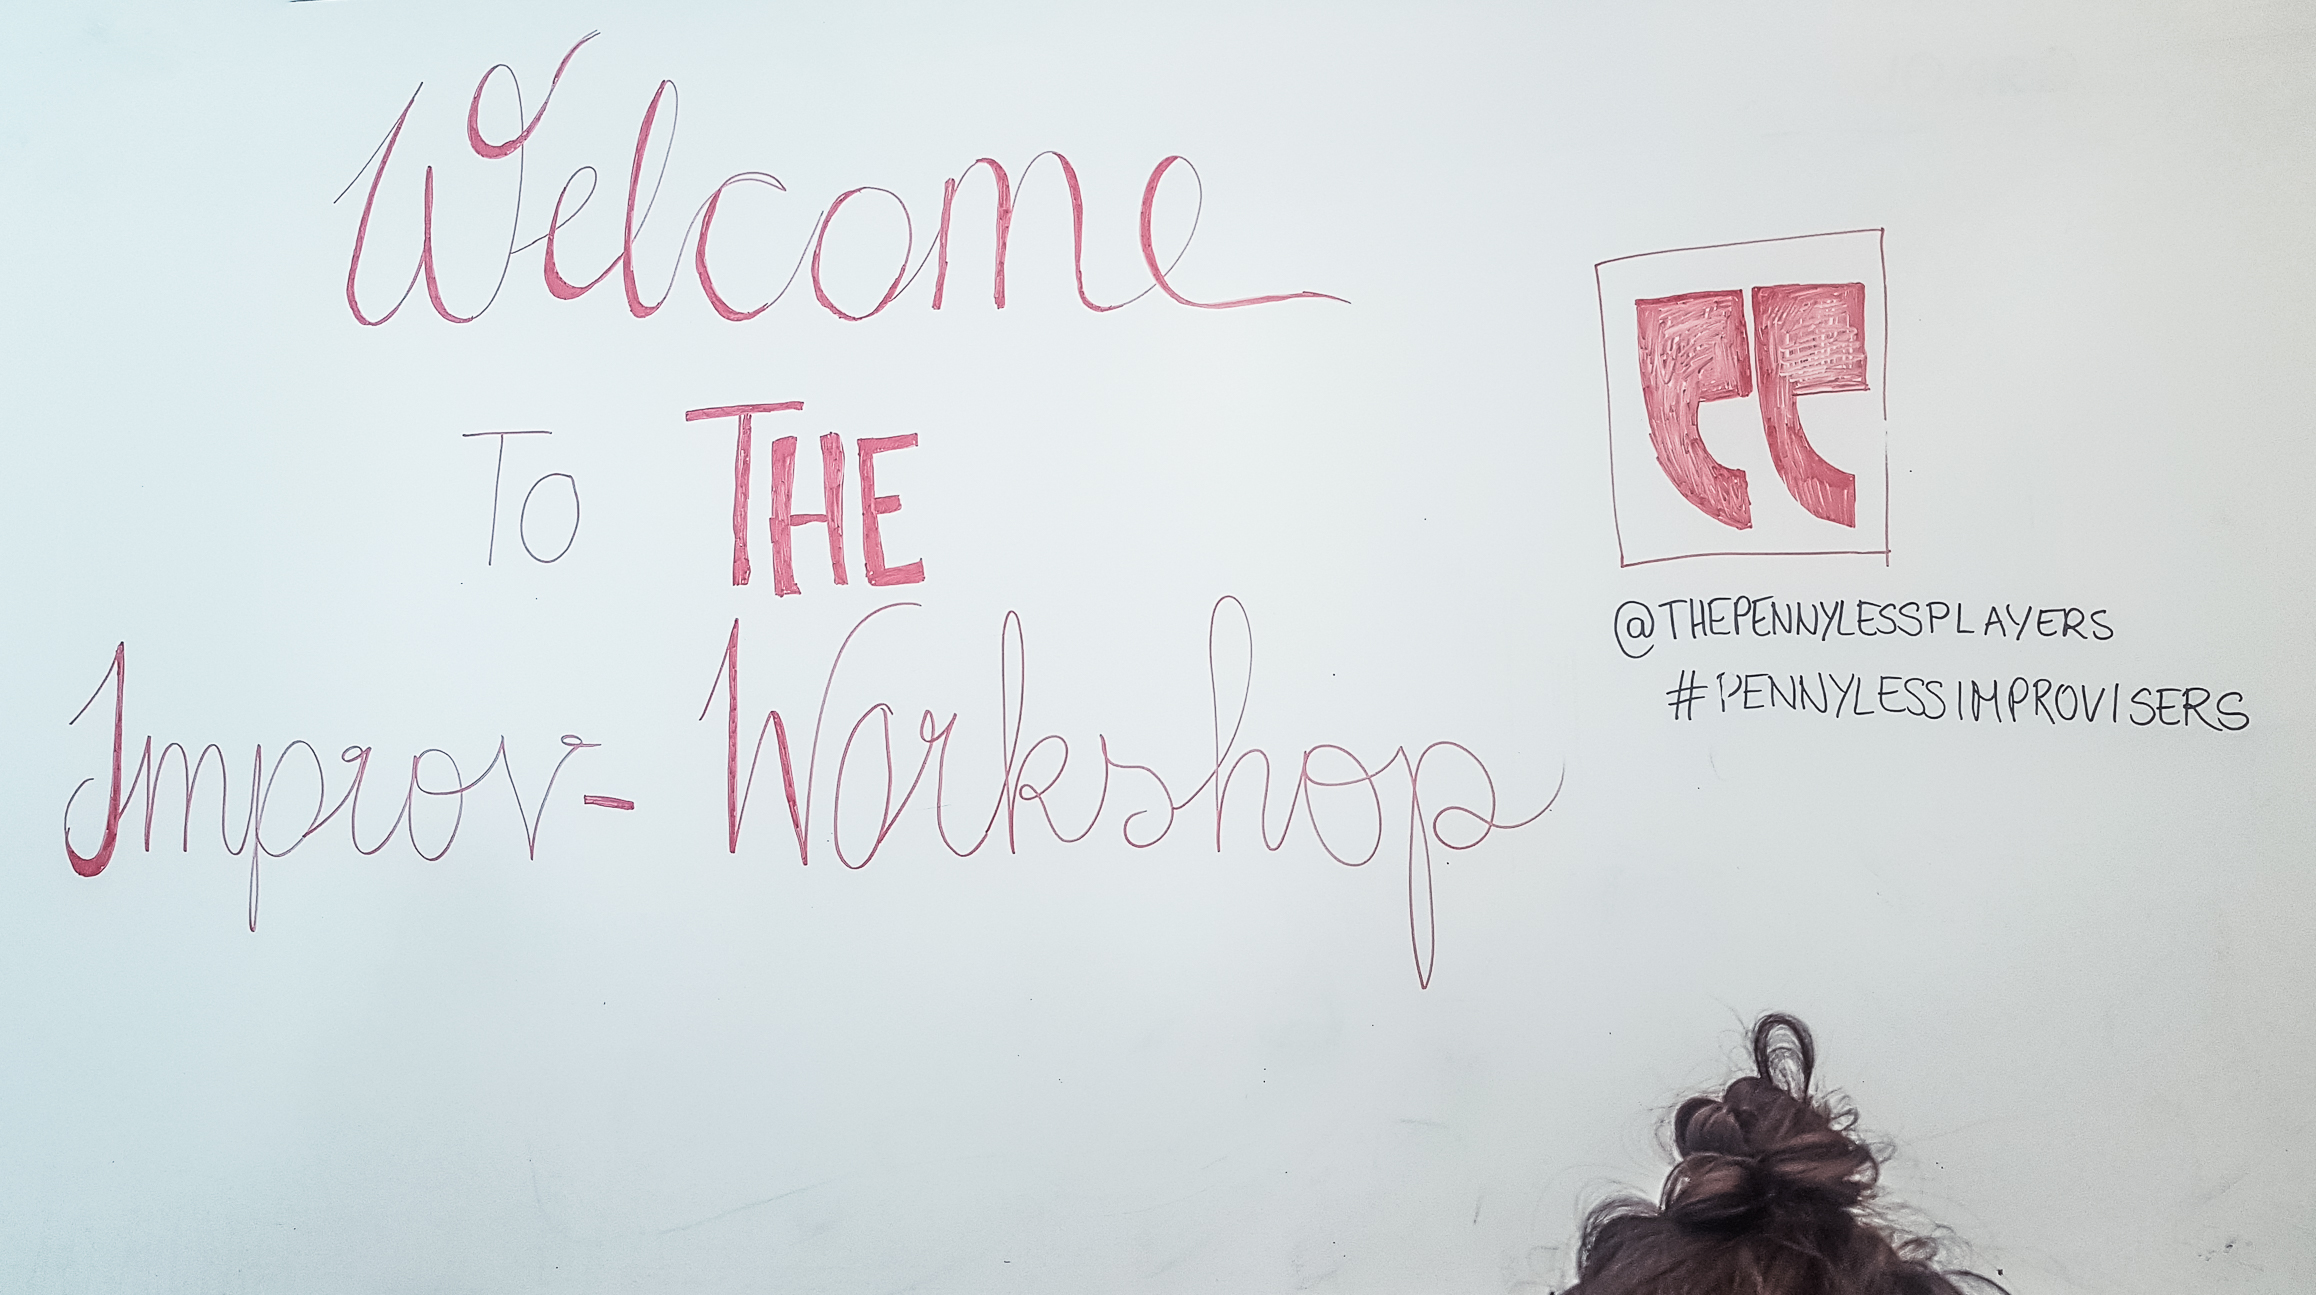 Welcome
To THE
Improv-Workshop
@THEPENNYLESSPLAYERS
#PENNYLESSIMPROVISERS